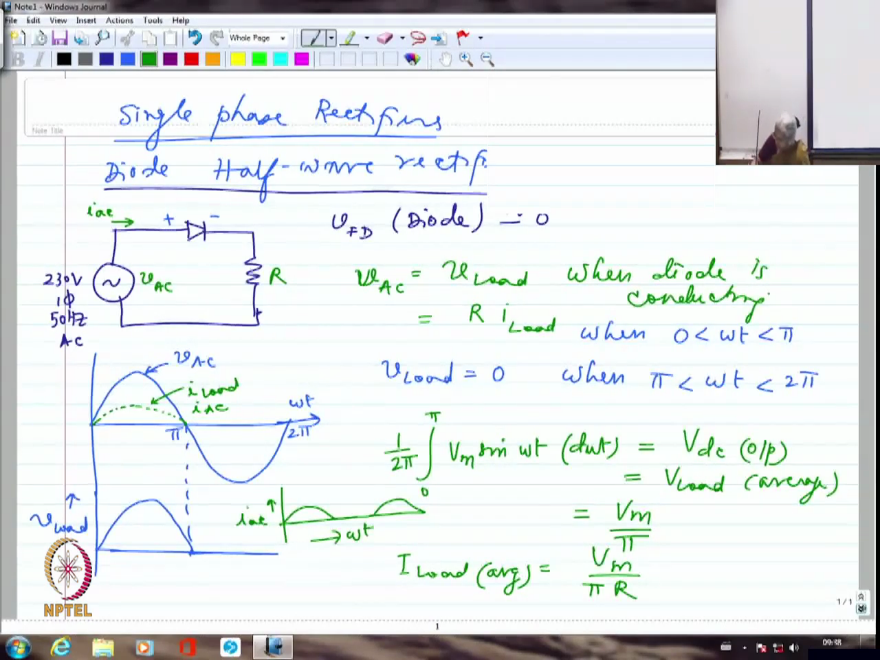 Note1 - Windows Journal
File Edit View Insert Actions Tools Help
Whole Page
B I
Note Title
Single phase Rectifiers
Diode Half-wave rectifi
iac
+ -
v_FD (Diode) = 0
230V
1φ
50Hz
AC
v_AC
R
v_AC = v_Load when diode is
conducting
= R i_Load when 0 < wt < π
v_AC
i Load
i AC
wt
π
2π
v_Load = 0 when π < wt < 2π
1/2π ∫_0^π Vm sin wt (dwt) = Vdc (o/p)
= V_Load (average)
= Vm/π
v_Load ↑
iac ↑
→ wt
I Load (avg) = Vm/πR
NPTEL
1/1
1
09:48